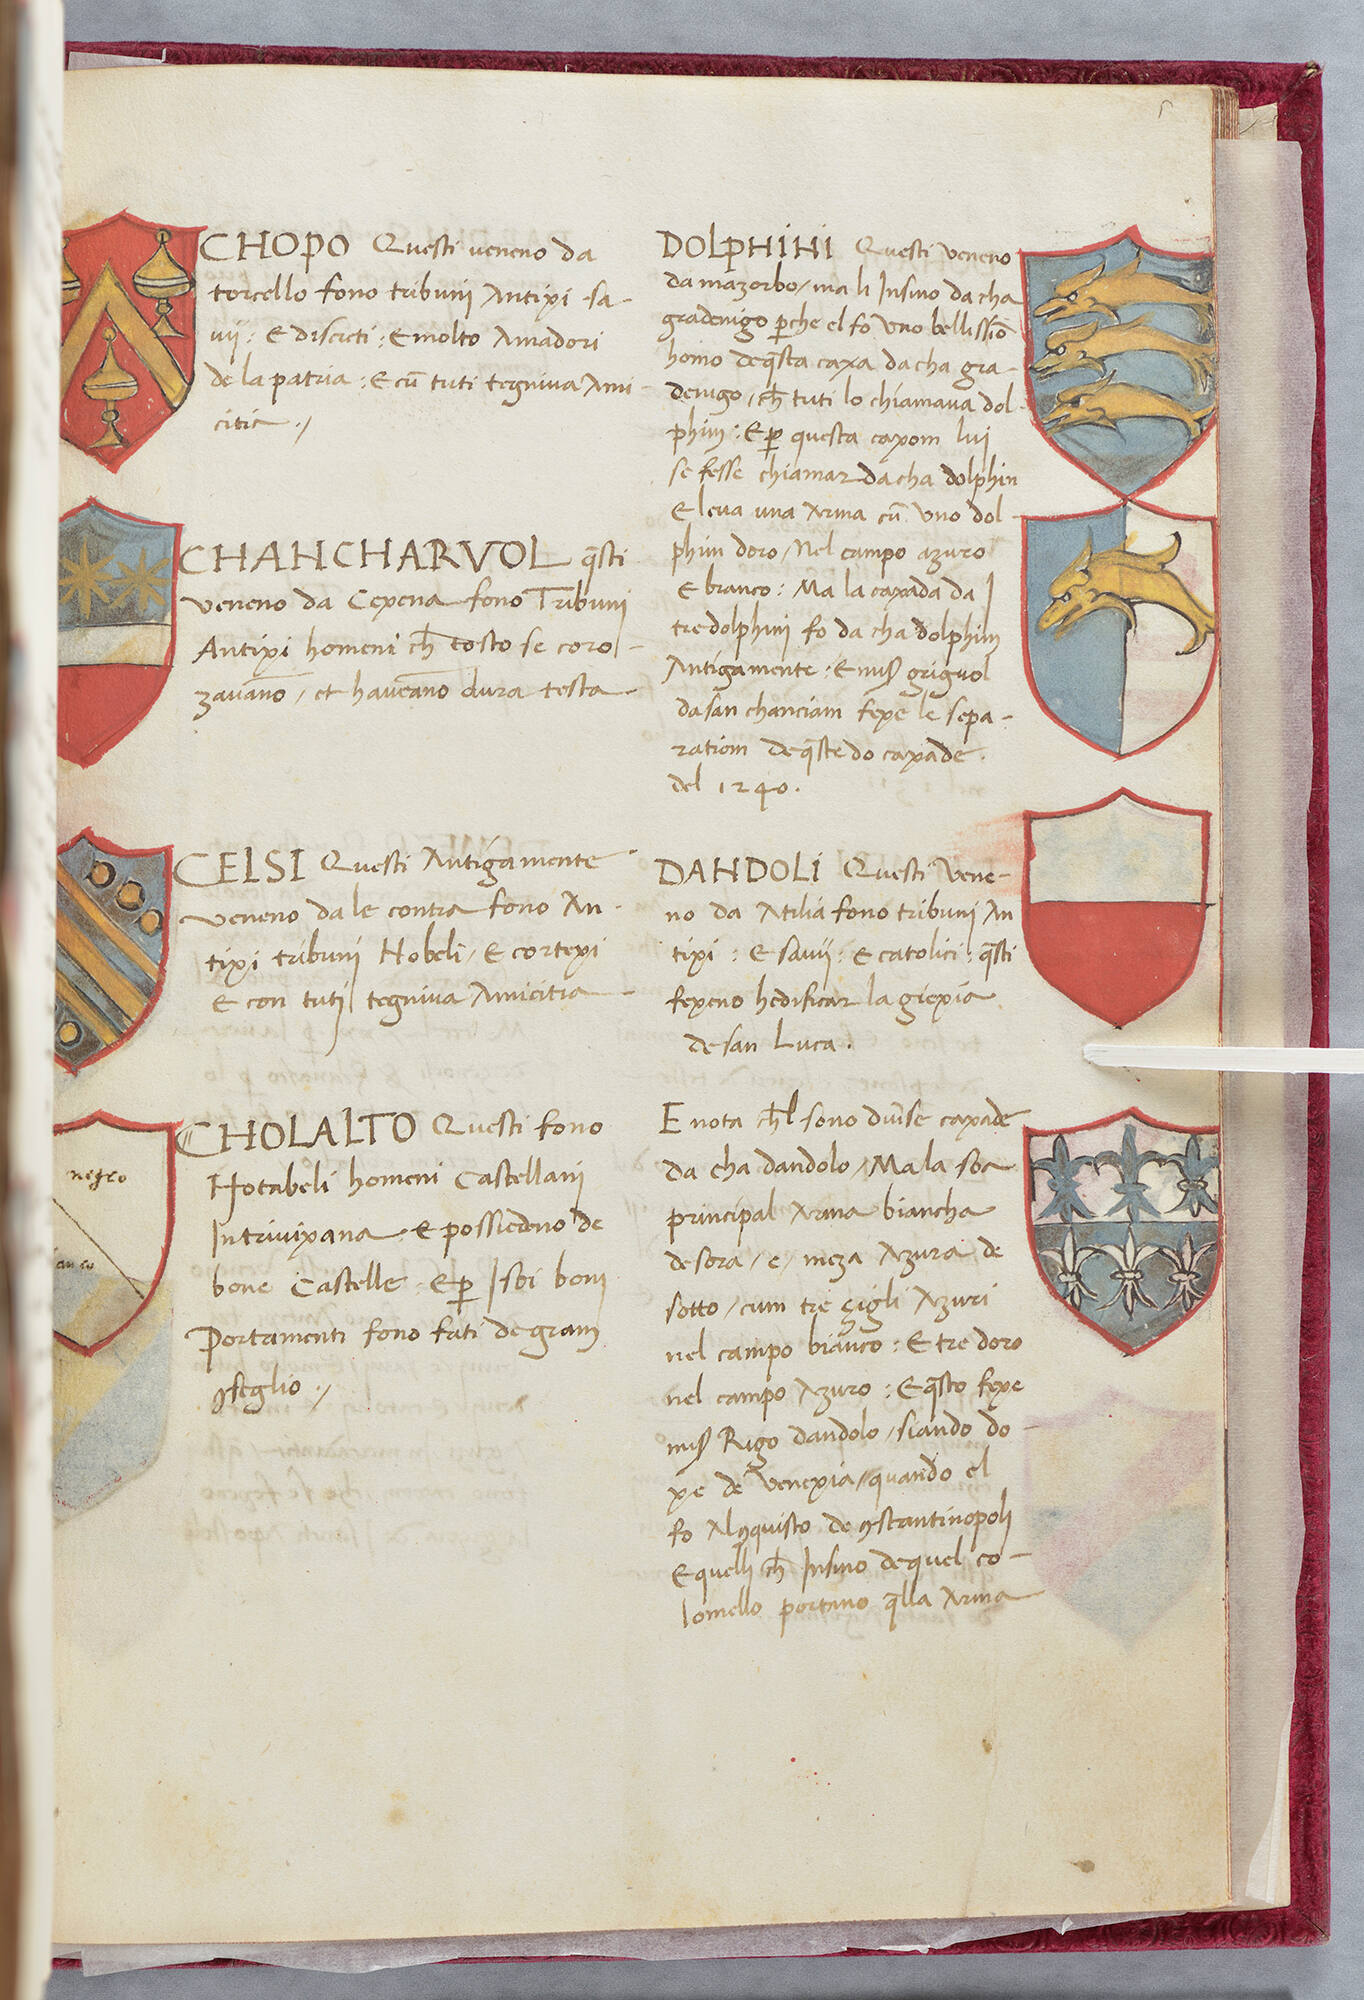 5
CHOPO Questi veneno da
torcello fono tribuni Antixi sa-
vij : E discreti : E molto Amadori
de la patria : E cu͂ tuti tegniva Ami-
citia ./
CHANCHARVOL q̃sti
veneno da Cexena fono Tribuni
Antixi homeni ch̃ tosto se coro-
zavano / et haveano dura testa -
CELSI Questi Antigamente
veneno da le contra fono An-
tixi tribuni Nobeli / E cortexi
E con tuti tegniva Amicitia -
negro
CHOLALTO Questi fono
Notabeli homeni Castellani
In trivixana E possiedeno de
bone Castelle E ꝑ I soi boni
Portamenti fono fati de gram
ꝯseglio ./
DOLPHINI Questi veneno
da mazorbo / ma li Insino da cha
gradenigo ꝑche el fo Uno bellissio͂
homo de q̃sta caxa da cha gra-
denigo / ch̃ tuti lo chiamava dol-
phim : E ꝑ questa caxom lui
se fesse chiamar da cha dolphin
E leva una Arma cu͂ Uno dol-
phim doro / Nel campo azuro
E branco : Ma la caxada da I
tre dolphini fo da cha dolphim
Antigamente : E miẜ griguol
da san chanciam fexe le sepa-
ratiom de q̃ste do caxade.
del 1240.
DANDOLI Questi Vene-
no da Atilia fono tribuni An
tixi : E savij : E catolici : q̃sti
fexeno hedificar la giexia
de san Luca.
E nota ch̃l sono divise caxade
da cha dandolo / Ma la soa
principal Arma biancha
de sora / e / meza Azura de
sotto / cum tre zigli Azuri
nel campo bianco : E tre doro
nel campo Azuro : E q̃sto fexe
miẜ Rigo dandolo / siando do-
xe de Venexia / quando el
fo Alꝯquisto de ꝯstantinopoli
E quelli ch̃ Insino de quel co-
lomello portano q̃lla Arma